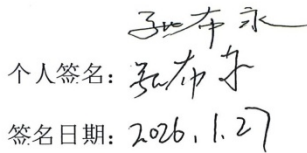 布永
个人签名：布
签名日期：2026.1.27